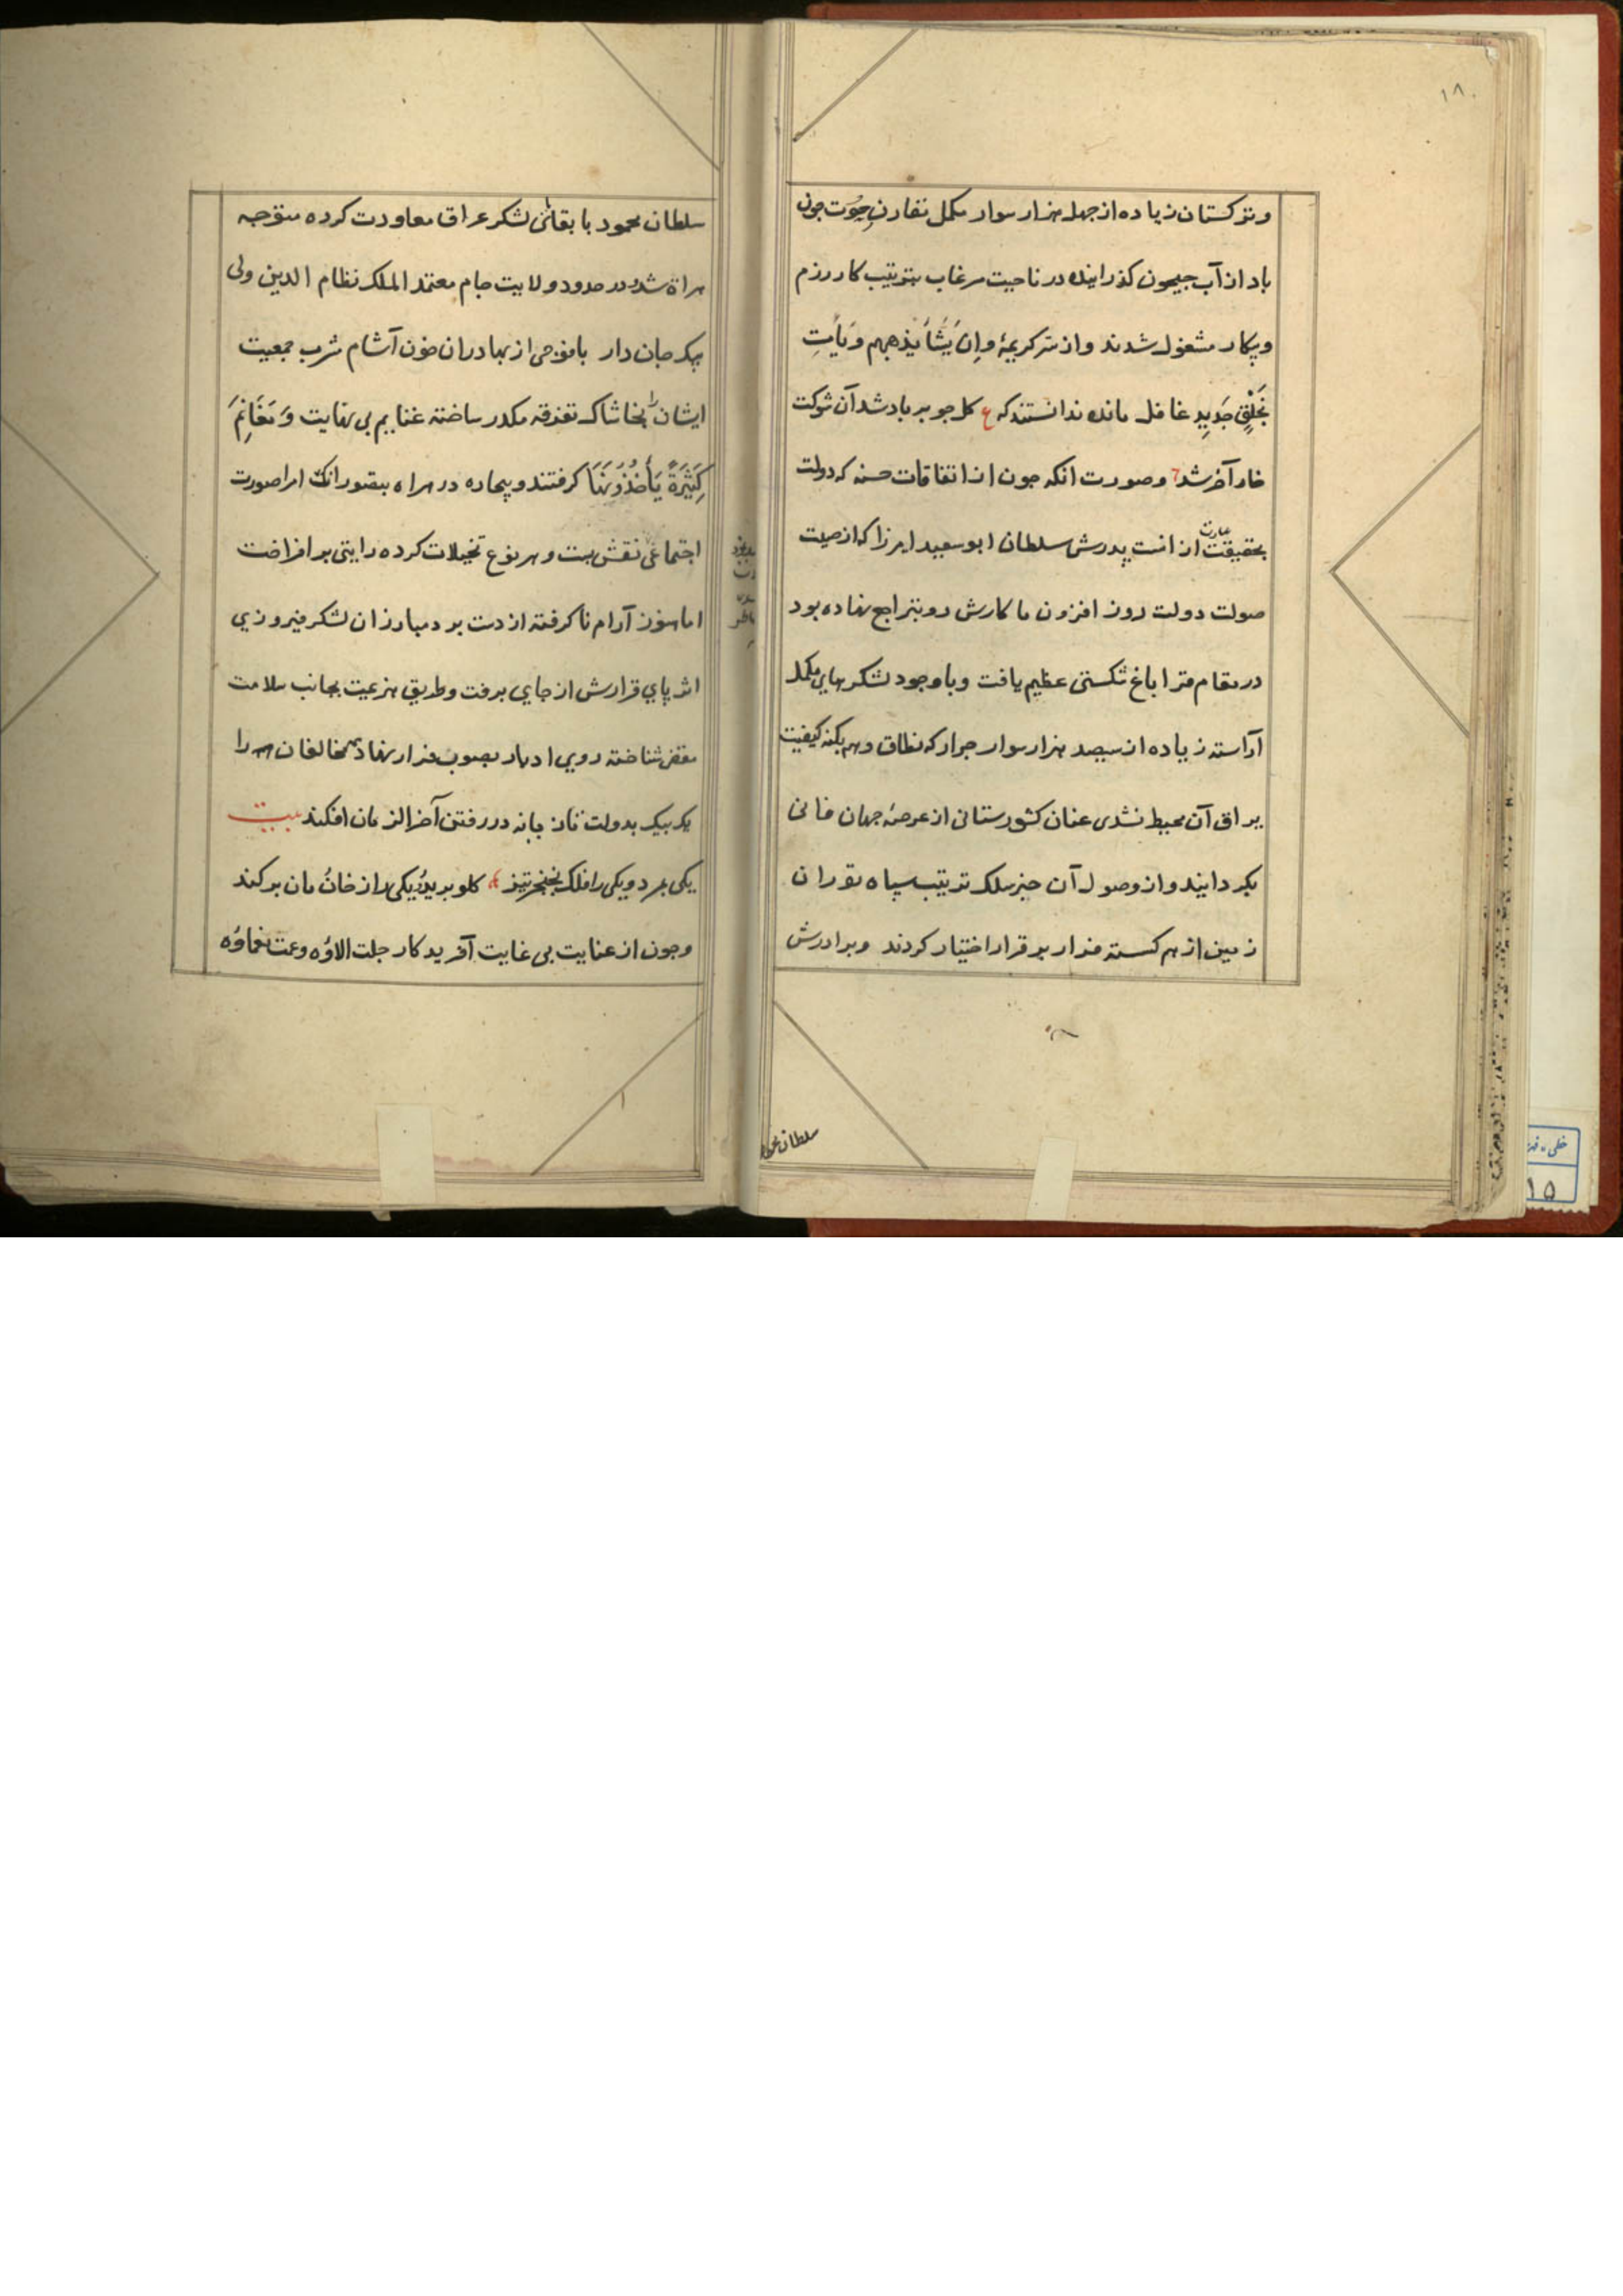 ۱۸۰
وترکستان زیاده از جهل هزار سوار مکمل نفاذن جون
باد از آب جیحون کذرانیده در ناحیت مرغاب بترتیب کار رزم
وپیکار مشغول شدند واز سر کریمهٔ وَاِن یَشَأ یُذهبهم وَیَأتِ
بِخَلْقٍ جَدِیدٍ غافل مانده ندانستند که ع کل جو بر باد شد آن شوکت
خار آخر شد وصورت انکه جون از اتفاقات حسنه که دولت
بحقیقت عبارت از انست پدرش سلطان ابوسعید میرزا که از صیت
صولت دولت روز افزون ما کارش رو بتراجع نهاده بود
در مقام قراباغ شکستی عظیم یافت وبا وجود لشکرهای مکمل
آراسته زیاده از سیصد هزار سوار جرار که نطاق وهم بکنه کیفیت
یراق آن محیط نشدی عنان کشورستانی از عرصهٔ جهان فانی
بکردانید واز وصول آن خبر سلک ترتیب سپاه توران
زمین از هم کسسته فرار بر قرار اختیار کردند وبرادرش
سلطان محمود
سلطان محمود با بقائی لشکر عراق معاودت کرده متوجه
هراة شد ودر حدود ولایت جام معتمد الملک نظام الدین ولی
بیک جان دار بافوجی از بهادران خون آشام شرب جمعیت
ایشان را بخاشاک تفرقه مکدر ساخته غنایم بی نهایت وَمَغَانِمَ
كَثِيرَةً يَأخُذُونَهَا کرفتند وبیچاره در هراه بتصور انک امرا صورت
اجتماعی نقش بست وهر نوع تخیلات کرده رایتی بر افراخت
اما هنوز آرام ناکرفته از دست برد مبارزان لشکر فیروزی
اثر پای قرارش از جای برفت وطریق هزیمت بجانب سلامت
مفض شناخته روی ادبار بصوب فرار نهاد مخالفان همه را
یک بیک بدولت تازیانه در رفتن آخر الزمان افکند بیت
یکی بمرد ویکی را فلک بخنجر تیز کلو برید ویکی را ز خان ومان برکند
وجون از عنایت بی غایت آفریدکار جلت الاؤه وعمت نعماؤه
خطی
۱۵